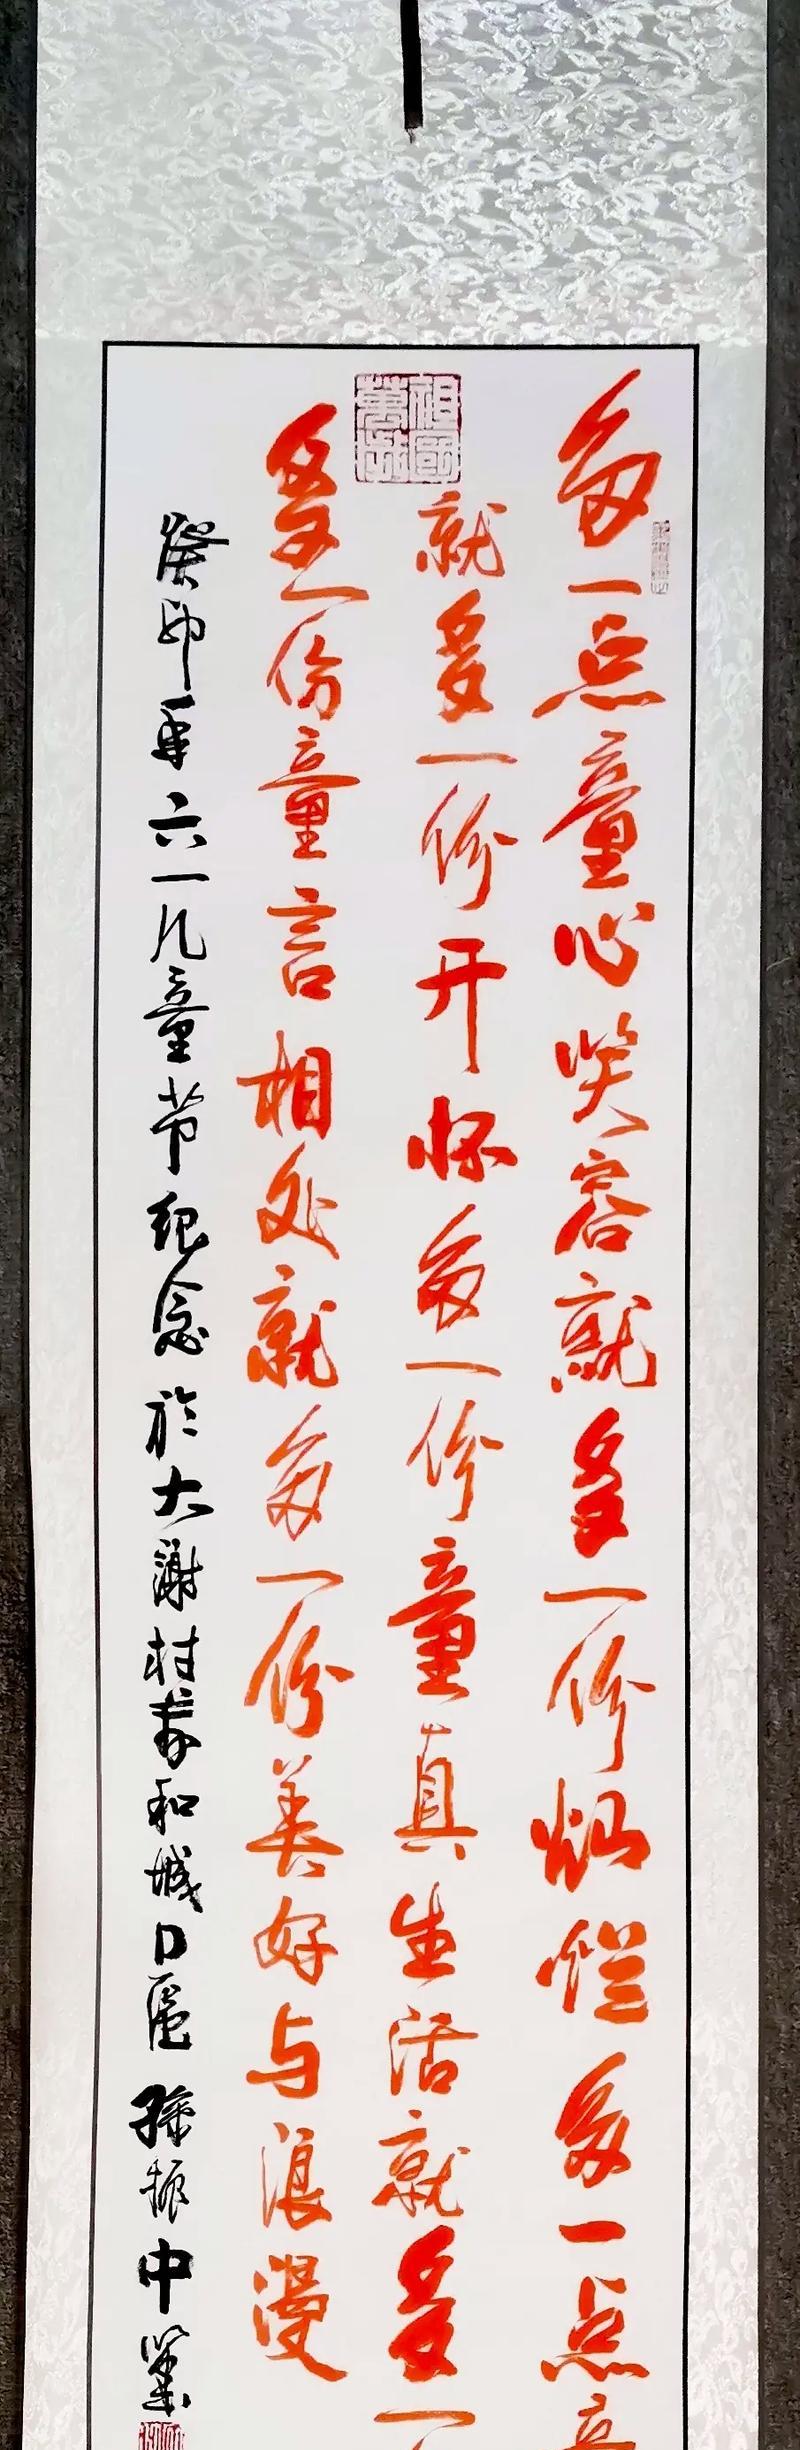 多一点童心笑容就多一份灿烂多一点
就多一份开怀多一份童真生活就多一
多一份童言相处就多一份美好与浪漫
癸卯年六一儿童节纪念於大谢村泰和城口区孙振中业
祖國萬歲